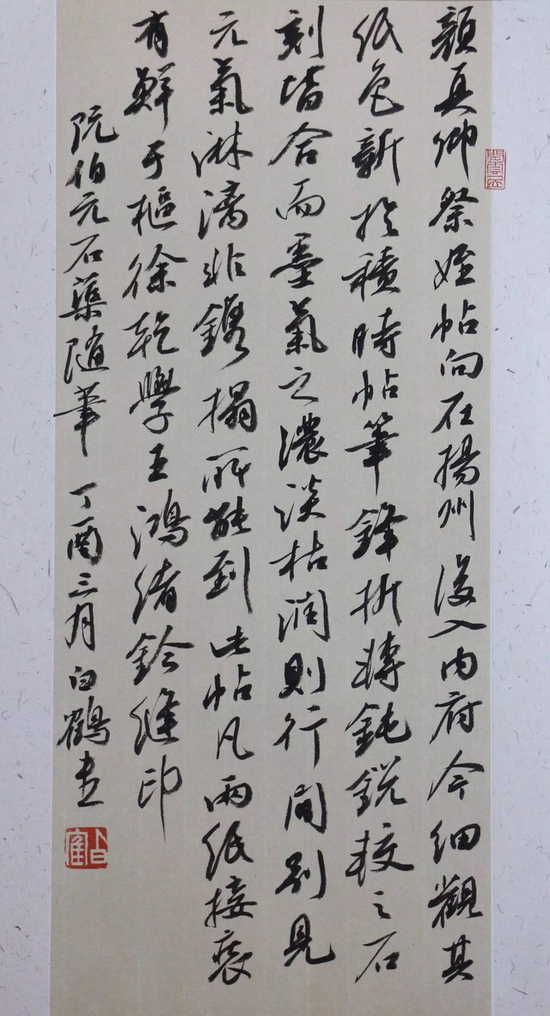 顔真卿祭姪帖向在揚州後入内府今細觀其
紙色新於積時帖筆鋒折轉鈍鋭較之石
刻皆合而墨氣之濃淡枯潤則行間别見
元氣淋漓非鐫搨所能到此帖凡兩紙接裝
有鮮于樞徐乾學王鴻緒鈐縫印
阮伯元石渠随筆 丁酉三月 白鶴書